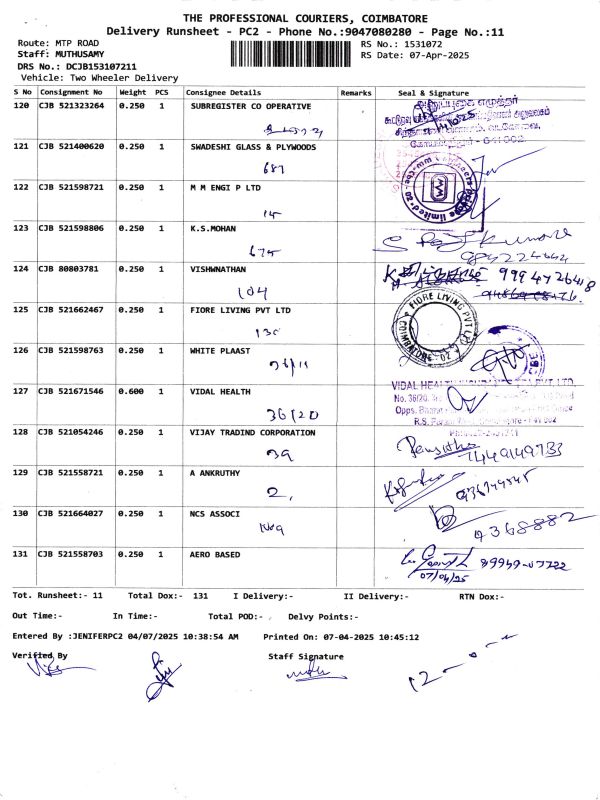 THE PROFESSIONAL COURIERS, COIMBATORE
Delivery Runsheet - PC2 - Phone No.:9047080280 - Page No.:11
Route: MTP ROAD
RS No.: 1531072
Staff: MUTHUSAMY
RS Date: 07-Apr-2025
DRS No.: DCJB153107211
Vehicle: Two Wheeler Delivery
S No Consignment No Weight PCS Consignee Details Remarks Seal & Signature
120 CJB 521323264 0.250 1 SUBREGISTER CO OPERATIVE
121 CJB 521400620 0.250 1 SWADESHI GLASS & PLYWOODS
687
122 CJB 521598721 0.250 1 M M ENGI P LTD
15
123 CJB 521598806 0.250 1 K.S.MOHAN
675
124 CJB 80803781 0.250 1 VISHWNATHAN
104
125 CJB 521662467 0.250 1 FIORE LIVING PVT LTD
130
FIORE LIVING PVT LTD
COIMBATORE-02
126 CJB 521598763 0.250 1 WHITE PLAAST
127 CJB 521671546 0.600 1 VIDAL HEALTH
36/20
VIDAL HEALTH
No. 36/20,
Opps.
128 CJB 521054246 0.250 1 VIJAY TRADIND CORPORATION
39
129 CJB 521558721 0.250 1 A ANKRUTHY
2,
130 CJB 521664027 0.250 1 NCS ASSOCI
9368882
131 CJB 521558703 0.250 1 AERO BASED
07/04/25
Tot. Runsheet:- 11 Total Dox:- 131 I Delivery:- II Delivery:- RTN Dox:-
Out Time:- In Time:- Total POD:- Delvy Points:-
Entered By :JENIFERPC2 04/07/2025 10:38:54 AM Printed On: 07-04-2025 10:45:12
Verified By Staff Signature